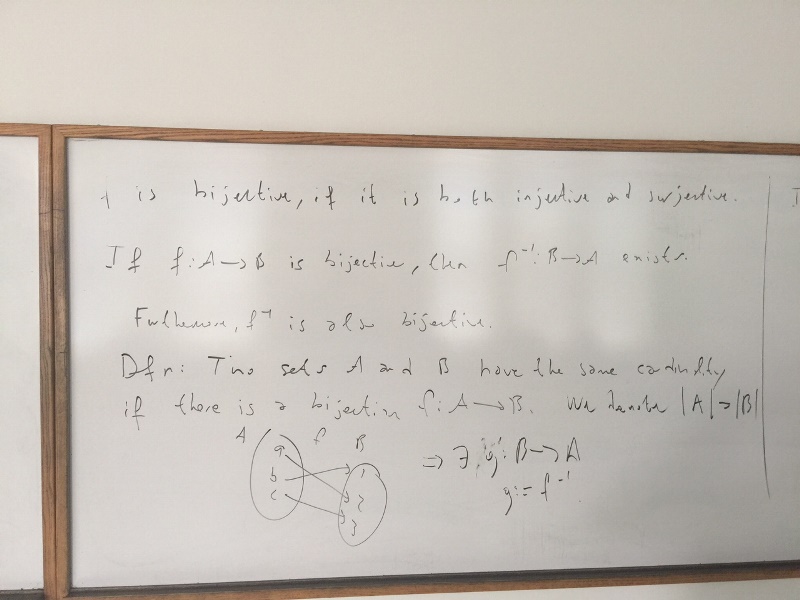 f is bijective, if it is both injective and surjective.
If f: A → B is bijective, then f⁻¹: B → A exists.
Furthermore, f⁻¹ is also bijective.
Dfn: Two sets A and B have the same cardinality
if there is a bijection f: A → B. We denote |A| = |B|
A f B
a
b
c
1
2
3
⇒ ∃ g: B → A
g := f⁻¹